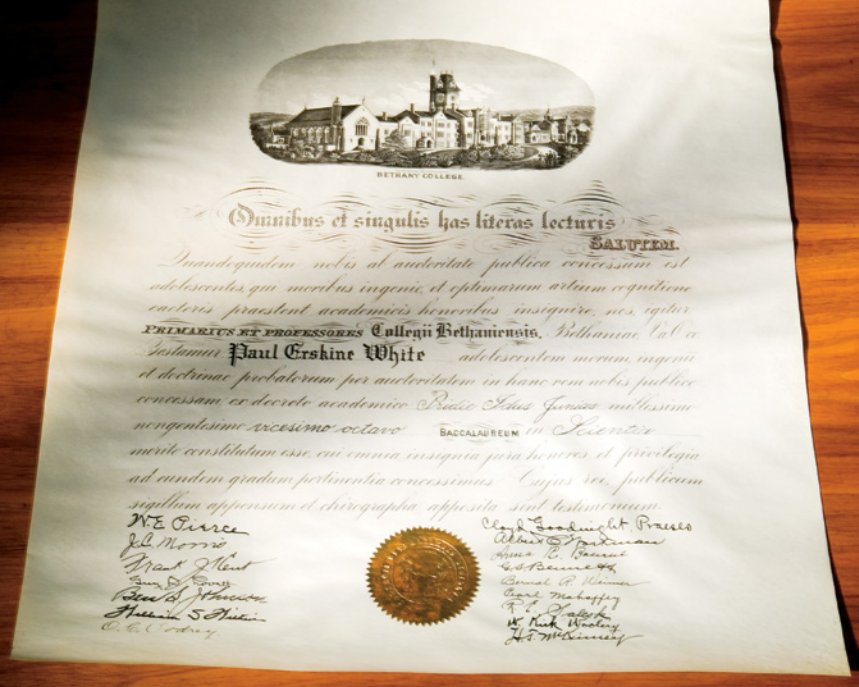 BETHANY COLLEGE.
Omnibus et singulis has literas lecturis
SALUTEM.
Quandoquidem nobis ab auctoritate publica concessum est
adolescentes, qui moribus ingenio, et optimarum artium cognitione
caeteris praestent academicis honoribus insignire, nos, igitur
PRIMARIUS ET PROFESSORES Collegii Bethaniensis, Bethaniae,
testamur Paul Erskine White adolescentem morum, ingenii
et doctrinae probatorum per auctoritatem in hanc rem nobis publice
concessam, ex decreto academico Pridie Idus Junias millessimo
nongentesimo vicesimo octavo BACCALAUREUM in Scientia
merito constitutum esse, cui omnia insignia jura honores, et privilegia
ad eundem gradum pertinentia concessimus. Cujus rei, publicum
sigillum appensum et chirographa apposita sint testimonium.
W.E. Pierce
J.C. Morris
Frank J. Kent
Ben S. Johnson
William S. Wilkin
Cloyd Goodnight Praeses
Anna R. Bourne
G.S. Bennett
Bernal R. Weimer
Pearl Mahaffey
W. Kirk Woolery
H.T. McKinney